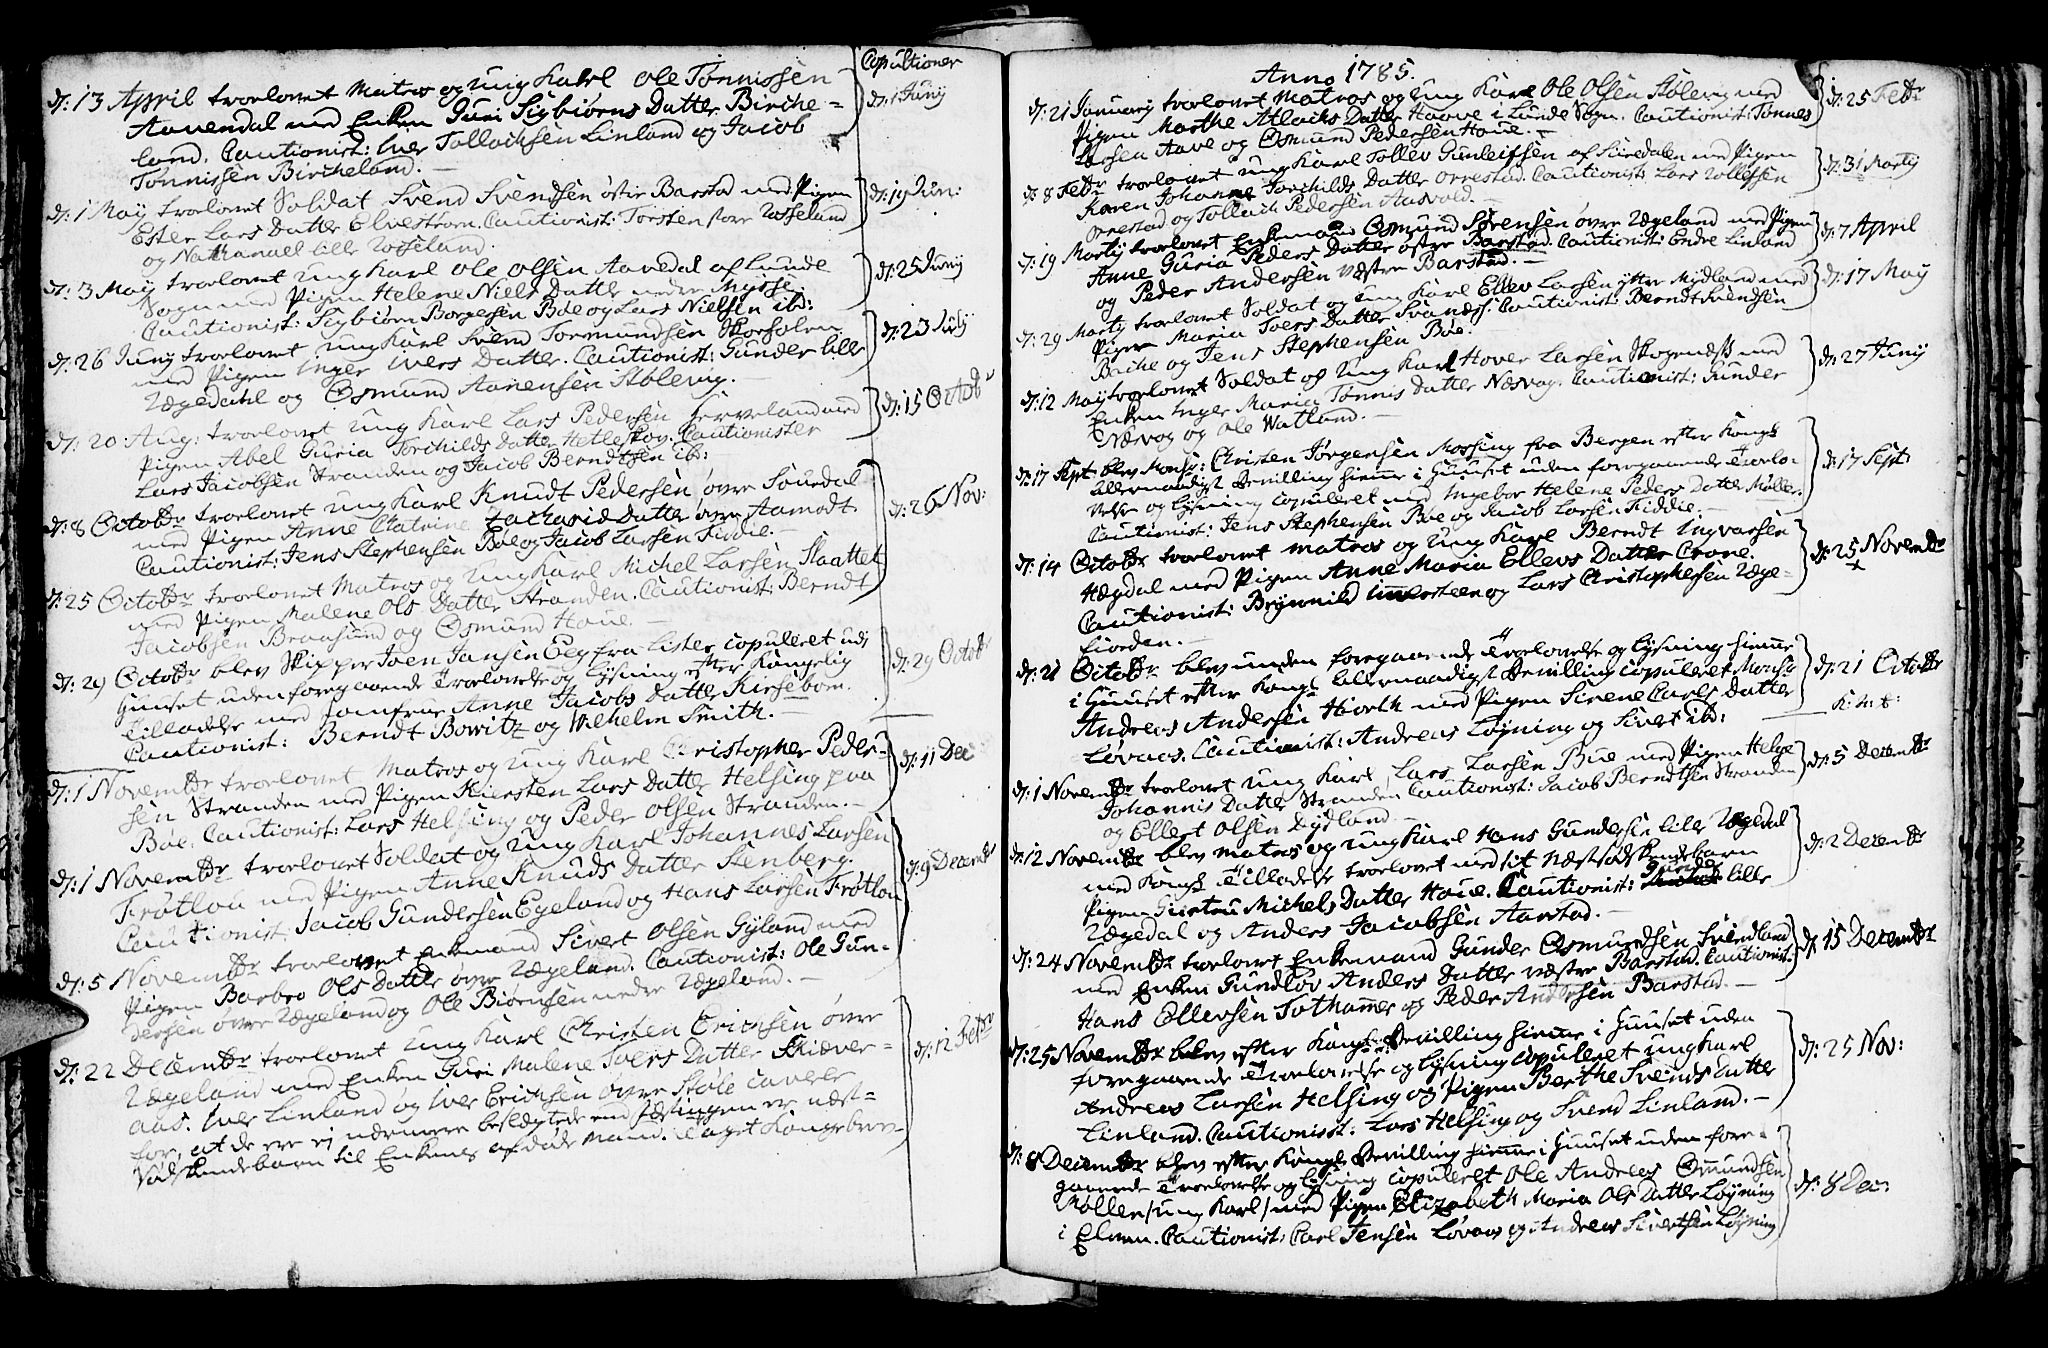 Copultioner
d: 13 April troelovet Matros og Ung Karl Ole Tønnissen
d: 1 Junij
Aanendal med Enken Guri Sigbiørns Datter Birche-
land. Cautionist: Iver Tollachsen Linland og Jacob
Tønnissen Bircheland. —
d: 1 Maij troelovet Soldat Svend Svendsen øster Barstad med Pigen
d: 19 Jun:
Ester Lars Datter Elvestrøm. Cautionist: Torsten store Rosseland
og Nathanael lille Rosseland.
d: 3 Maij troelovet Ung Karl Ole Olsen Aavedal af Lunde
d: 25 Junij
Sogn med Pigen Helene Niels Datter nedre Mysse.
Cautionist: Sigbiørn Borgesen Bøe og Lars Nielsen ibd:
d: 26 Junij troelovet ung Karl Svend Tormundsen Skorholen
d: 23 Julij
med Pigen Inger Ivers Datter. Cautionist: Gunder lille
Ægedahl og Osmund Aanensen Stølevig. —
d: 20 Aug: troelovet Ung Karl Lars Pedersen Jerveland med
d: 15 Octobr
Pigen Abel Guria Torchilds Datter Hetleskog. Cautionister
Lars Jacobsen Stranden og Jacob Berndtsen ib:
d: 8 Octobr troelovet ung Karl Knudt Pedersen øvre Souredal
d: 26 Nov:
med Pigen Anne Catrine Zacharie Datter øvre Aamodt.
Cautionist: Jens Stephensen Bøe og Jacob Larsen Fiddie. —
d: 25 Octobr troelovet Matros og Ung Karl Michel Larsen Slaattet
med Pigen Malene Ols Datter Stranden. Cautionist: Berndt
Jacobsen Braasund og Osmund Houe. —
d: 29 Octobr blev Skipper Joen Jansen Eeg fra Lister copuleret udi
d: 29 Octobr
Huuset uden foregaaende Troelovelse og Lysning efter Kongelig
Tilladelse med Jomfrue Anne Jacobs Datter Kirsebom.
Cautionist: Berndt Bowitz og Wilhelm Smith. —
d: 1 Novembr troelovet Matros og ung Karl Christopher Peder-
d: 11 Dec:
sen Stranden med Pigen Kiersten Lars Datter Helsing paa
Bøe. Cautionist: Lars Helsing og Peder Olsen Stranden. —
d: 1 Novembr troelovet Soldat og ung Karl Johannes Larsen
d: 9 Decembr
Frøtlou med Pigen Anne Knuds Datter Stenberg.
Cautionist Jacob Gundersen Egeland og Hans Larsen Frøtlou
d: 5 Novembr troelovet Enkemand Sivert Olsen Gyland med
Pigen Barbro Ols Datter øvre Ægeland. Cautionist: Ole Gun-
dersen øvre Ægeland og Ole Biørnsen nedre Ægeland. —
d: 22 Decembr troelovet Ung Karl Christen Erichsen øvre
d: 12 Febr
Ægeland med Enken Guri Malene Toers Datter Skiæver-
aas. Iver Linland og Iver Erichsen øvre Støle cavere
for, at de ere ej nærmere beslægtede end Fæstingen er næst-
Sødskendebarn til Enkens afdøde Mand. Taget Kongebrev

Anno 1785.
d: 21 Januarij troelovet Matros og Ung Karl Ole Olsen Stølevig med
d: 25 Febr
Pigen Marthe Atlachs Datter Haave i Lunde Sogn. Cautionist: Tønnes
Larsen Aave og Osmund Pedersen Houe. —
d: 8 Febr troelovet ung Karl Tollev Gunleifsen af Siredalen med Pigen
d: 31 Martij
Karen Johanne Torchilds Datter Orrestad. Cautionist: Lars Rolfsen
Orrestad og Tollach Pedersen Aasvold. —
d: 19 Martij troelovet Enkemand Osmund Sørensen øvre Ægeland med Pigen
d: 7 April
Anne Guria Peders Datter østre Barstad. Cautionist: Endre Linland
og Peder Andersen væstre Barstad. —
d: 29 Martij troelovet Soldat og ung Karl Ellev Larsen ytter Mydland med
d: 17 Maij
Pigen Maria Toers Datter Svanæs. Cautionist: Berndt Svendsen
Bache og Jens Stephensen Bøe.
d: 12 Maij troelovet Soldat og Ung Karl Hover Larsen Skogenæss med
d: 27 Junij
Enken Inger Maria Tønnis Datter Næsvog. Cautionist: Gunder
Næsvog og Ole Watland. —
d: 17 Sept blev Monsr: Christen Jørgensen Mossing fra Bergen efter Kongl:
d: 17 Sept:
allernaadigst Bevilling hiemme i Huuset uden foregaaende Troelo-
velse og Lysning copuleret med Ingebor Helene Peders Datter Møller.
Cautionist: Jens Stephensen Bøe og Jacob Larsen Fiddie. —
d: 14 Octobr troelovet Matros og Ung Karl Berndt Ingvarsen
d: 25 Novembr
+
Hægdal med Pigen Anne Maria Ellevs Datter Crone.
Cautionist: Brynnild og Lars Christophersen Æge-
fiorden. —
d: 21 Octobr blev uden foregaaende Troelovelse og Lysning hiemme
d: 21 Octobr
i Huuset efter Kongl allernaadigst Bevilling copuleret Monsr
K: n: t:
Andreas Andersen Høvelk med Pigen Sirene Carls Datter
Løvaas. Cautionist: Andreas Løyning og Sivert ibd:
d: 1 Novembr troelovet Ung Karl Lars Larsen Bue med Pigen Helge
d: 5 Decembr
Johannis Datter Stranden Cautionist: Jacob Berndtsen Stranden
og Ellert Olsen Dydland. —
d: 12 Novembr blev Matros og ung Karl Hans Gundersen lille Ægedal
d: 2 Decembr
med Kongl Tilladelse troelovet med sit Næstsødskendebarn
Pigen Giertru Michels Datter Houe. Cautionist: Gunder lille
Ægedal og Anders Jacobsen Aarstad. —
d: 24 Novembr troelovet Enkemand Gunder Osmundsen Svendland
d: 15 Decembr
med Enken Gundlov Anders Datter væstre Barstad. Cautionist:
Hans Ellevsen Tothammer og Peder Andersen Barstad. —
d: 25 Novembr blev efter Kongl: Bevilling hiemme i Huuset uden
d: 25 Nov:
foregaaende Troelovelse og Lysning copuleret ung Karl
Andreas Larsen Helsing og Pigen Berthe Svends Datter
Linland. Cautionist: Lars Helsing og Svend Linland. —
d: 8 Decembr blev efter Kongl Bevilling hiemme i Huuset uden fore-
d: 8 Dec:
gaaende Troelovelse og Lysning copuleret Ole Andreas Omundsen
Møller /ung Karl/ med Pigen Elizabeth Maria Ols Datter Løyning
i Elven. Cautionist: Carl Jensen Løvaas og Andreas Sivertsen Løyning